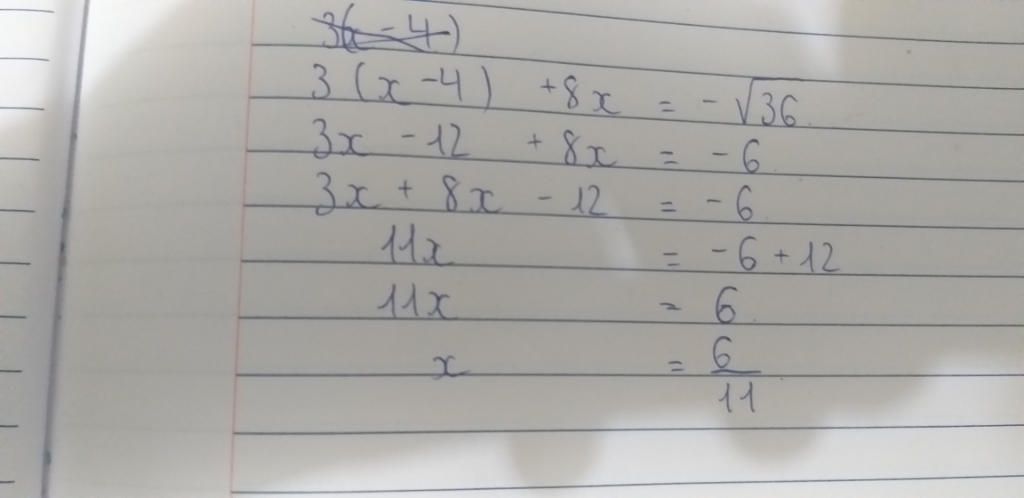 3(x - 4)
3 (x - 4) + 8x = - √36
3x - 12 + 8x = - 6
3x + 8x - 12 = - 6
11x = - 6 + 12
11x = 6
x = 6/11